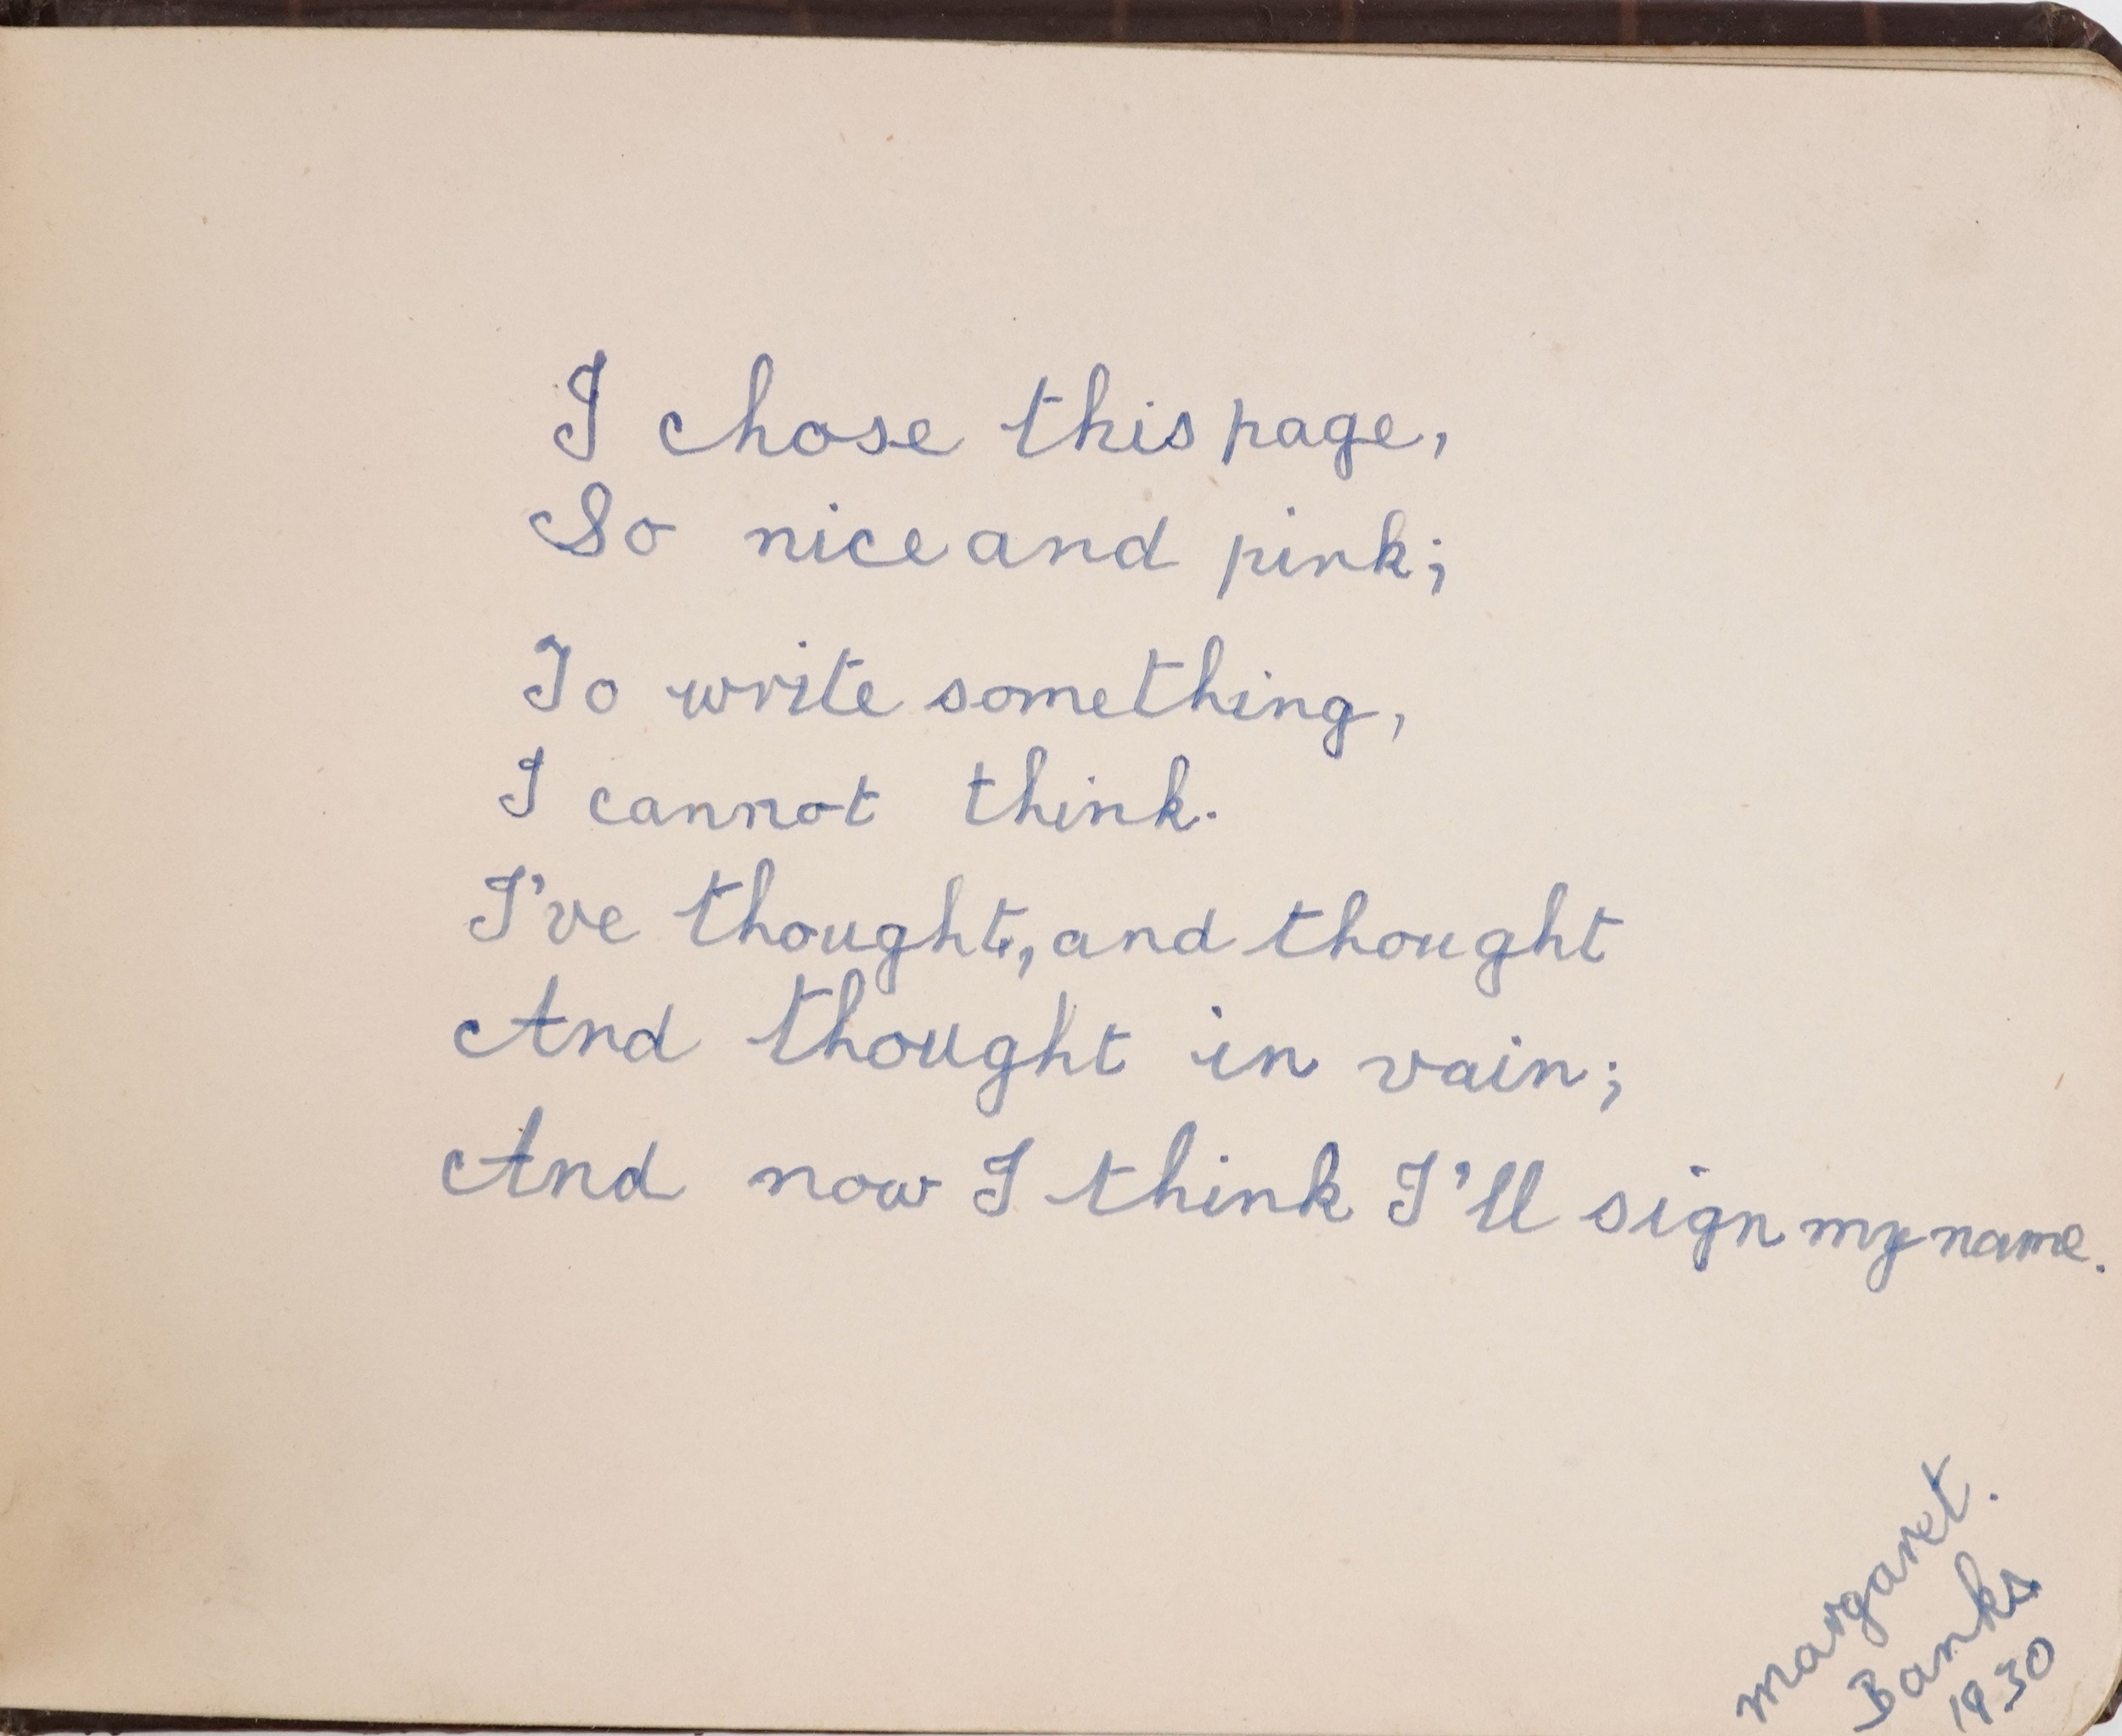 I chose this page,
So nice and pink;
To write something,
I cannot think.
I've thought, and thought
And thought in vain;
And now I think I'll sign my name.
Margaret.
Banks
1930